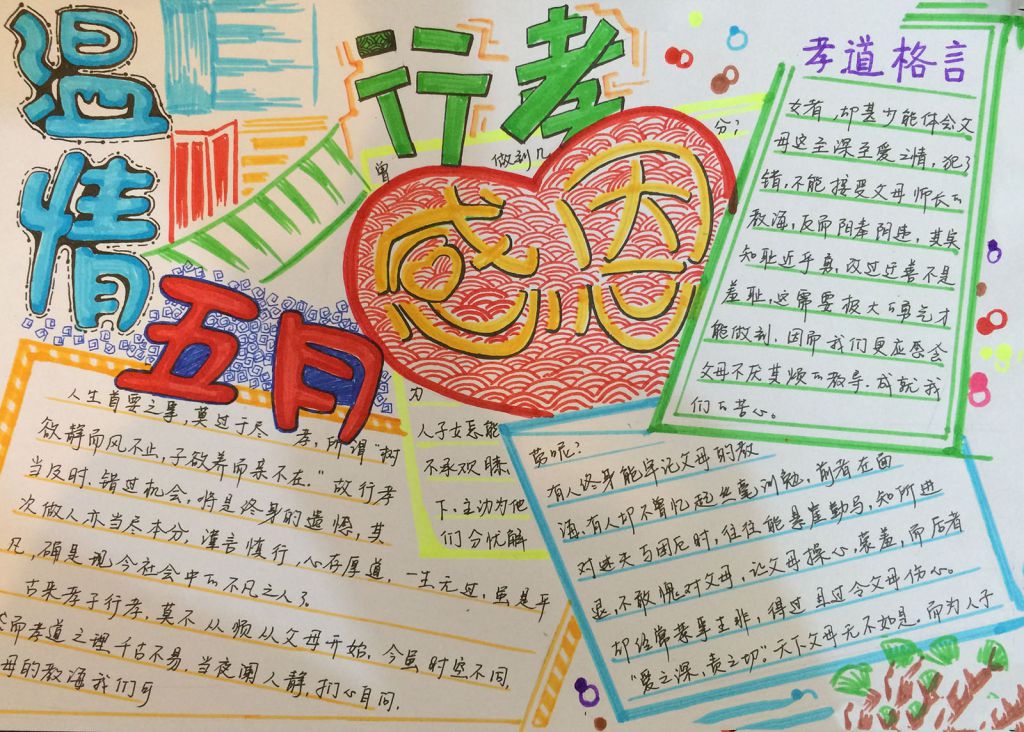 温情
五月
行孝
感恩
人生首要之事，莫过于尽 孝，所谓“树
欲静而风不止，子欲养而亲不在。”故行孝
当及时，错过机会，将是终身的遗憾，其
次做人亦当尽本分，谨言慎行，心存厚道，一生无过，虽是平
凡，确是现今社会中的不凡之人了。
古来孝子行孝，莫不从顺从父母开始，今虽时空不同，
然而孝道之理千古不易，当夜阑人静，扪心自问，
母的教诲我们可
曾 做到几 分？
为
人子女怎能
不承欢膝
下，主动为他
们分忧解
劳呢？
有人终身能牢记父母的教
诲，有人却不曾忆起丝毫训勉，前者在面
对迷失与困厄时，往往能悬崖勒马，知所进
退，不敢愧对父母，让父母操心，蒙羞，而后者
却经常惹事生非，得过且过令父母伤心。
“爱之深，责之切”。天下父母无不如是。而为人子
孝道格言
女者，却甚少能体会父
母这至深至爱之情，犯了
错，不能接受父母师长的
教诲，反而阳奉阴违，其实
知耻近乎勇，改过迁善不是
羞耻，这需要极大的勇气才
能做到，因而我们更应感念
父母不厌其烦的教导，成就我
们的苦心。